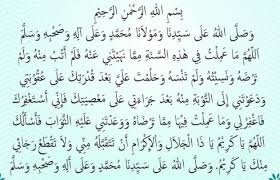 بِسْمِ اللهِ الرَّحْمٰنِ الرَّحِيْمِ
وَصَلَّى اللهُ عَلَى سَيِّدِنَا وَمَوْلَانَا مُحَمَّدٍ وَعَلَى آلِهِ وَصَحْبِهِ وَسَلَّمَ
اَللّٰهُمَّ مَا عَمِلْتُ فِي هٰذِهِ السَّنَةِ مِمَّا نَهَيْتَنِي عَنْهُ فَلَمْ أَتُبْ مِنْهُ وَلَمْ
تَرْضَهُ وَنَسِيْتُهُ وَلَمْ تَنْسَهُ وَحَلُمْتَ عَلَيَّ بَعْدَ قُدْرَتِكَ عَلَى عُقُوْبَتِي
وَدَعَوْتَنِي إِلَى التَّوْبَةِ مِنْهُ بَعْدَ جَرَاءَتِي عَلَى مَعْصِيَتِكَ فَإِنِّي أَسْتَغْفِرُكَ
فَاغْفِرْلِي وَمَا عَمِلْتُ فِيْهَا مِمَّا تَرْضَاهُ وَوَعَدْتَنِي عَلَيْهِ الثَّوَابَ فَأَسْأَلُكَ
اَللّٰهُمَّ يَا كَرِيْمُ يَا ذَا الْجَلَالِ وَالْإِكْرَامِ أَنْ تَتَقَبَّلَهُ مِنِّي وَلَا تَقْطَعْ رَجَائِي
مِنْكَ يَا كَرِيْمُ. وَصَلَّى اللهُ عَلَى سَيِّدِنَا مُحَمَّدٍ وَعَلَى آلِهِ وَصَحْبِهِ وَسَلَّمَ